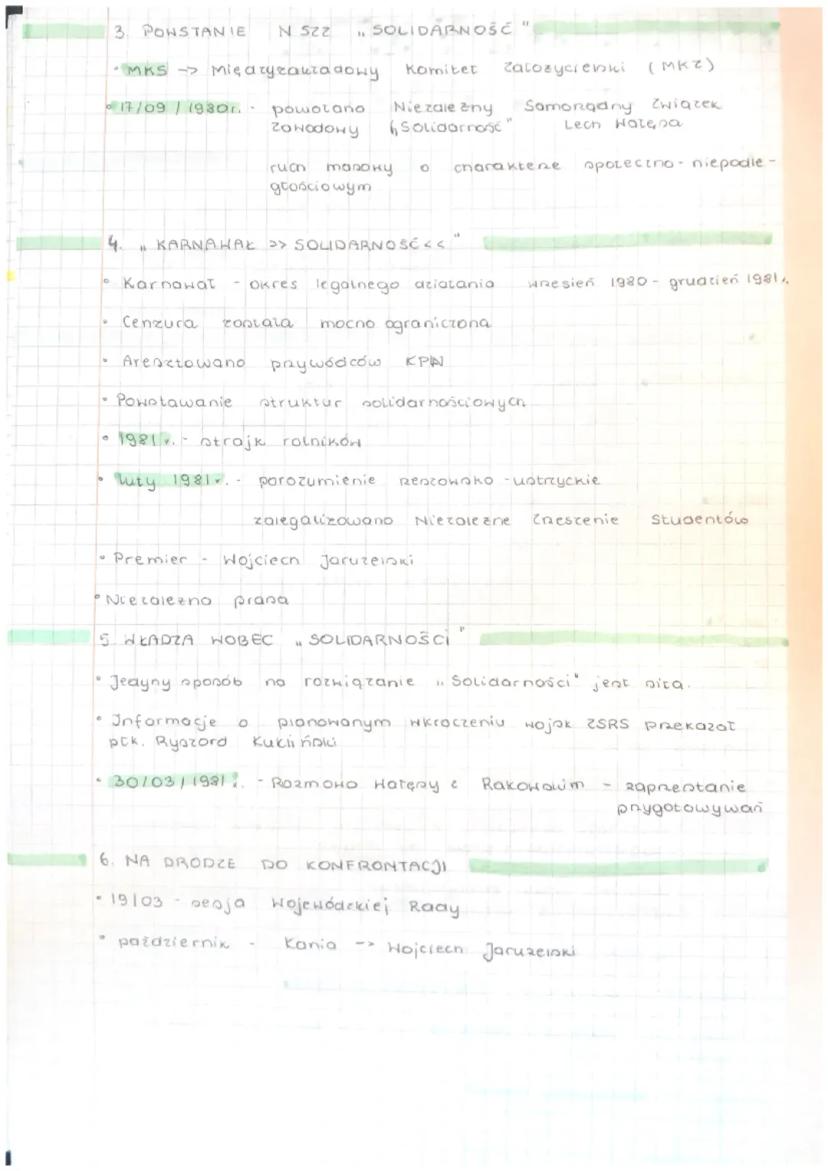 3. POWSTANIE NSZZ „SOLIDARNOŚĆ"
• MKS -> Międzyzakładowy Komitet Założycielski (MKZ)
• 17/09/1980r. - powołano Niezależny Samorządny Związek
Zawodowy „Solidarność" Lech Wałęsa
ruch masowy o charakterze społeczno-niepodle-
głościowym
4. „KARNAWAŁ >> SOLIDARNOŚĆ<<"
• Karnawał - okres legalnego działania wrzesień 1980 - grudzień 1981r.
• Cenzura została mocno ograniczona
• Aresztowano przywódców KPN
• Powstawanie struktur solidarnościowych
• 1981r. - strajk rolników
• luty 1981r. - porozumienie rzeszowsko-ustrzyckie
zalegalizowano Niezależne Zrzeszenie Studentów
• Premier - Wojciech Jaruzelski
• Niezależna prasa
5. WŁADZA WOBEC „SOLIDARNOŚCI"
• Jedyny sposób na rozwiązanie „Solidarności" jest siła.
• Informacje o planowanym wkroczeniu wojsk ZSRS przekazał
płk. Ryszard Kukliński
• 30/03/1981r. - Rozmowa Wałęsy z Rakowskim - zaprzestanie
przygotowywań
6. NA DRODZE DO KONFRONTACJI
• 19/03 - sesja Wojewódzkiej Rady
• październik - Kania -> Wojciech Jaruzelski